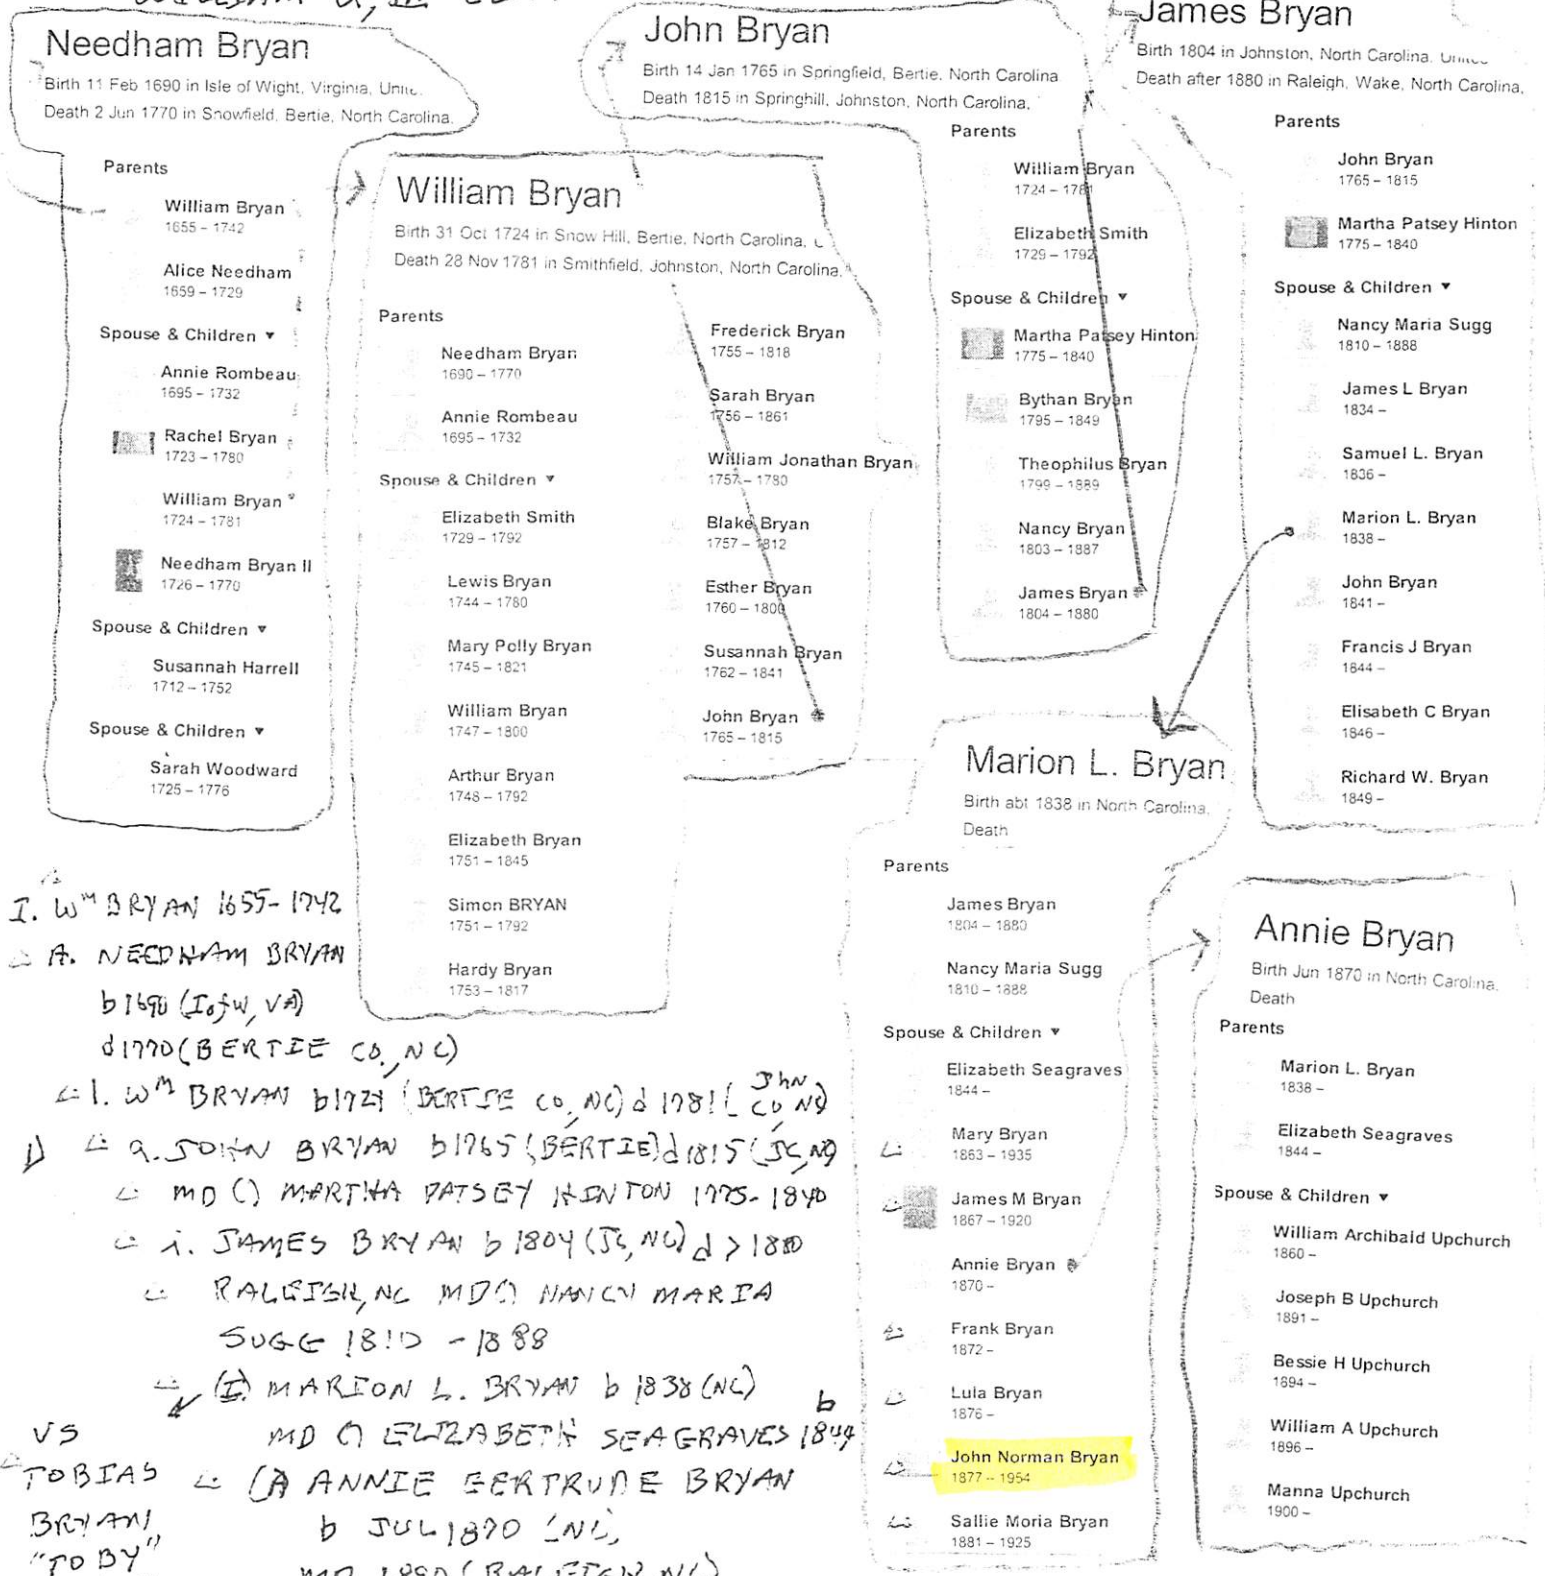 Needham Bryan
Birth 11 Feb 1690 in Isle of Wight, Virginia,
Death 2 Jun 1770 in Snowfield, Bertie, North Carolina.
Parents
William Bryan
1655 – 1742
Alice Needham
1659 – 1729
Spouse & Children ▾
Annie Rombeau
1695 – 1732
Rachel Bryan
1723 – 1780
William Bryan
1724 – 1781
Needham Bryan II
1726 – 1770
Spouse & Children ▾
Susannah Harrell
1712 – 1752
Spouse & Children ▾
Sarah Woodward
1725 – 1776
William Bryan
Birth 31 Oct 1724 in Snow Hill, Bertie, North Carolina,
Death 28 Nov 1781 in Smithfield, Johnston, North Carolina,
Parents
Needham Bryan
1690 – 1770
Annie Rombeau
1695 – 1732
Spouse & Children ▾
Elizabeth Smith
1729 – 1792
Lewis Bryan
1744 – 1780
Mary Polly Bryan
1745 – 1821
William Bryan
1747 – 1800
Arthur Bryan
1748 – 1792
Elizabeth Bryan
1751 – 1845
Simon BRYAN
1751 – 1792
Hardy Bryan
1753 – 1817
Frederick Bryan
1755 – 1818
Sarah Bryan
1756 – 1861
William Jonathan Bryan
1757 – 1780
Blake Bryan
1757 – 1812
Esther Bryan
1760 – 1800
Susannah Bryan
1762 – 1841
John Bryan
1765 – 1815
John Bryan
Birth 14 Jan 1765 in Springfield, Bertie, North Carolina
Death 1815 in Springhill, Johnston, North Carolina,
Parents
William Bryan
1724 – 1781
Elizabeth Smith
1729 – 1792
Spouse & Children ▾
Martha Patsey Hinton
1775 – 1840
Bythan Bryan
1795 – 1849
Theophilus Bryan
1799 – 1889
Nancy Bryan
1803 – 1887
James Bryan
1804 – 1880
James Bryan
Birth 1804 in Johnston, North Carolina,
Death after 1880 in Raleigh, Wake, North Carolina,
Parents
John Bryan
1765 – 1815
Martha Patsey Hinton
1775 – 1840
Spouse & Children ▾
Nancy Maria Sugg
1810 – 1888
James L Bryan
1834 –
Samuel L. Bryan
1836 –
Marion L. Bryan
1838 –
John Bryan
1841 –
Francis J Bryan
1844 –
Elisabeth C Bryan
1846 –
Richard W. Bryan
1849 –
Marion L. Bryan
Birth abt 1838 in North Carolina,
Death
Parents
James Bryan
1804 – 1880
Nancy Maria Sugg
1810 – 1888
Spouse & Children ▾
Elizabeth Seagraves
1844 –
Mary Bryan
1863 – 1935
James M Bryan
1867 – 1920
Annie Bryan
1870 –
Frank Bryan
1872 –
Lula Bryan
1876 –
John Norman Bryan
1877 – 1954
Sallie Moria Bryan
1881 – 1925
Annie Bryan
Birth Jun 1870 in North Carolina,
Death
Parents
Marion L. Bryan
1838 –
Elizabeth Seagraves
1844 –
Spouse & Children ▾
William Archibald Upchurch
1860 –
Joseph B Upchurch
1891 –
Bessie H Upchurch
1894 –
William A Upchurch
1896 –
Manna Upchurch
1900 –
I. Wm BRYAN 1655-1742
A. NEEDHAM BRYAN
b 1690 (I of W, VA)
d 1770 (BERTIE CO., NC)
1. Wm BRYAN b 1724 (BERTIE CO, NC) d 1781 (JOHN CO, NC)
a. JOHN BRYAN b 1765 (BERTIE) d 1815 (JC, NC)
MD () MARTHA PATSEY HINTON 1775-1840
i. JAMES BRYAN b 1804 (JC, NC) d > 1880
RALEIGH, NC MD () NANCY MARIA
SUGG 1810 - 1888
(I) MARION L. BRYAN b 1838 (NC)
MD () ELIZABETH SEAGRAVES b 1844
(A) ANNIE GERTRUDE BRYAN
b JUL 1870 (NC),
MD 1890 (RALEIGH, NC)
VS
TOBIAS
BRYAN
"TOBY"